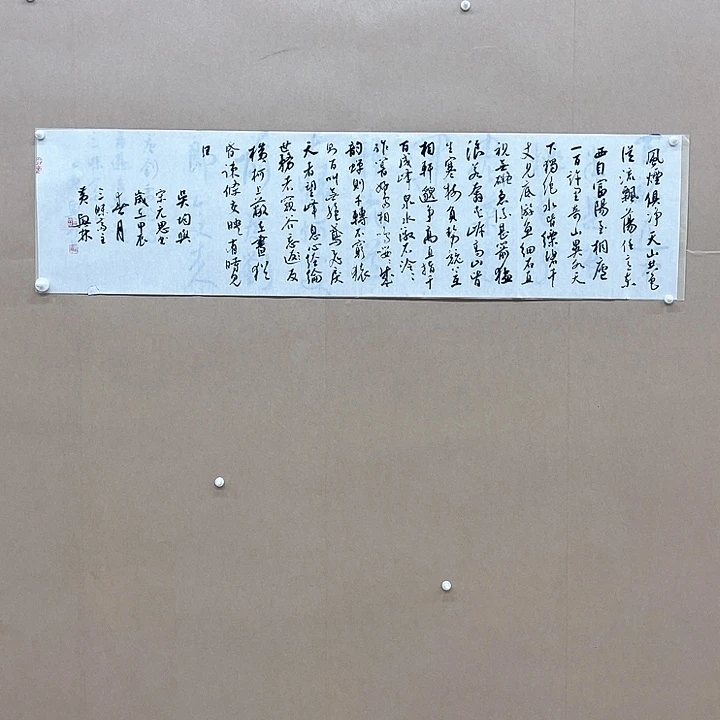 風煙俱淨天山共色
從流飄蕩任意東
西自富陽至桐廬
一百許里奇山異水天
下獨絕水皆縹碧千
丈見底游魚細石直
視無礙急湍甚箭猛
浪若奔夾岸高山皆
生寒樹負勢競上
相軒邈爭高直指千
百成峰泉水激石泠泠
作響好鳥相鳴嚶嚶成
韵蟬則千轉不窮猿
則百叫無絕鳶飛戾
天者望峰息心經綸
世務者窺谷忘返
橫柯上蔽在晝猶
昏疏條交映有時見
日
吳均與
宋元思書
歲在甲辰
春月
三明
黃興林